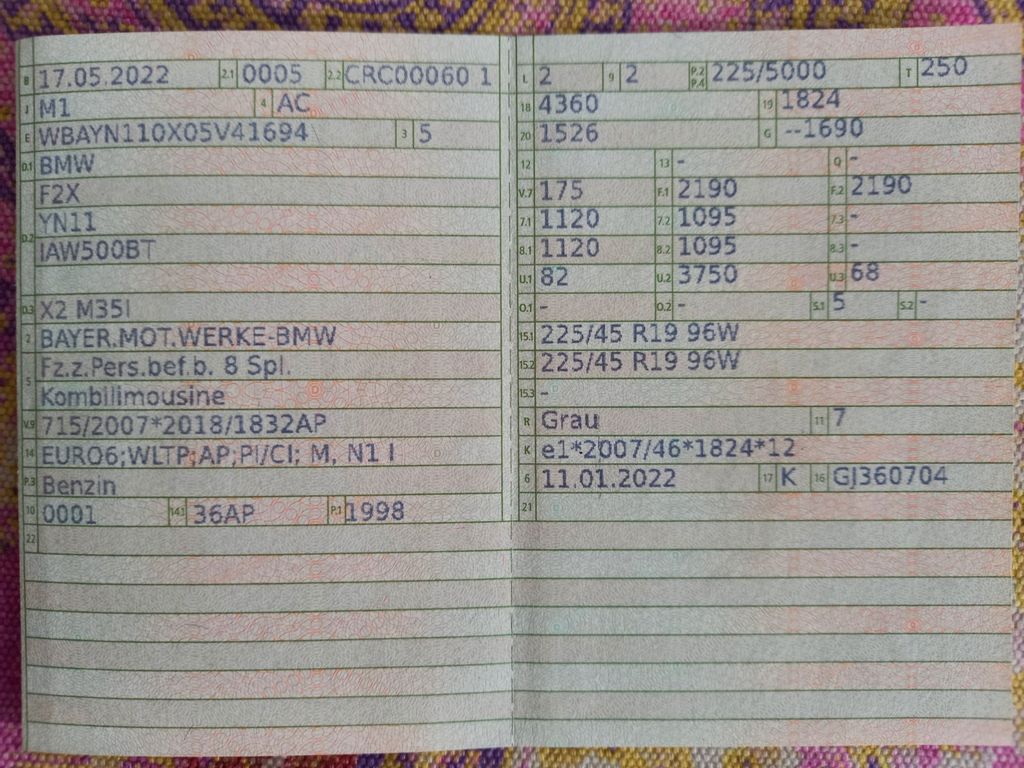 B 17.05.2022 2.1 0005 2.2 CRC00060 1
J M1 4 AC
E WBAYN110X05V41694 3 5
D.1 BMW
F2X
D.2 YN11
IAW500BT
D.3 X2 M35I
2 BAYER.MOT.WERKE-BMW
5 Fz.z.Pers.bef.b. 8 Spl.
Kombilimousine
V.9 715/2007*2018/1832AP
14 EURO6;WLTP;AP;PI/CI; M, N1 I
P.3 Benzin
10 0001 14.1 36AP P.1 1998
22
L 2 9 2 P.2 P.4 225/5000 T 250
18 4360 19 1824
20 1526 G --1690
12 13 - Q -
V.7 175 F.1 2190 F.2 2190
7.1 1120 7.2 1095 7.3 -
8.1 1120 8.2 1095 8.3 -
U.1 82 U.2 3750 U.3 68
O.1 - O.2 - S.1 5 S.2 -
15.1 225/45 R19 96W
15.2 225/45 R19 96W
15.3 -
R Grau 11 7
K e1*2007/46*1824*12
6 11.01.2022 17 K 16 GJ360704
21